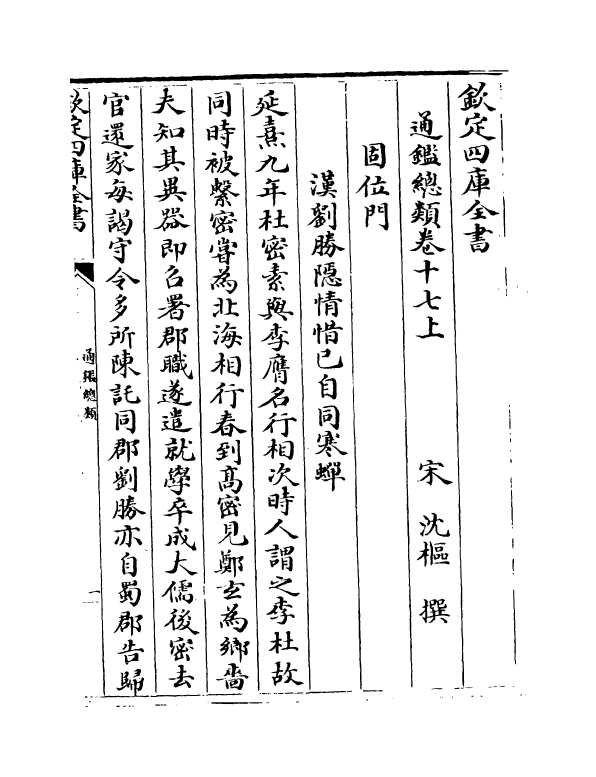 欽定四庫全書
通鑑總類卷十七上
宋 沈樞 撰
固位門
漢劉勝隱情惜已自同寒蟬
延熹九年杜密素與李膺名行相次時人謂之李杜故
同時被繫密嘗為北海相行春到高密見鄭玄為鄉嗇
夫知其異器即召署郡職遂遣就學卒成大儒後密去
官還家每謁守令多所陳託同郡劉勝亦自蜀郡告歸
欽定四庫全書
通鑑總類